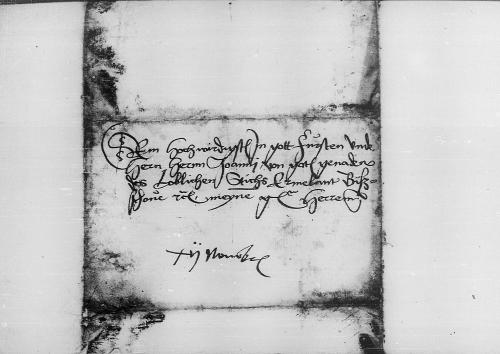 Dem Hochwirdigsten In gott Fürsten Vnde
Hern Herrn Joanni von gots genaden
des Loblichen Stichts Ermelant Bisz=
choue etc meyne g Herrenn
xij Nouebr